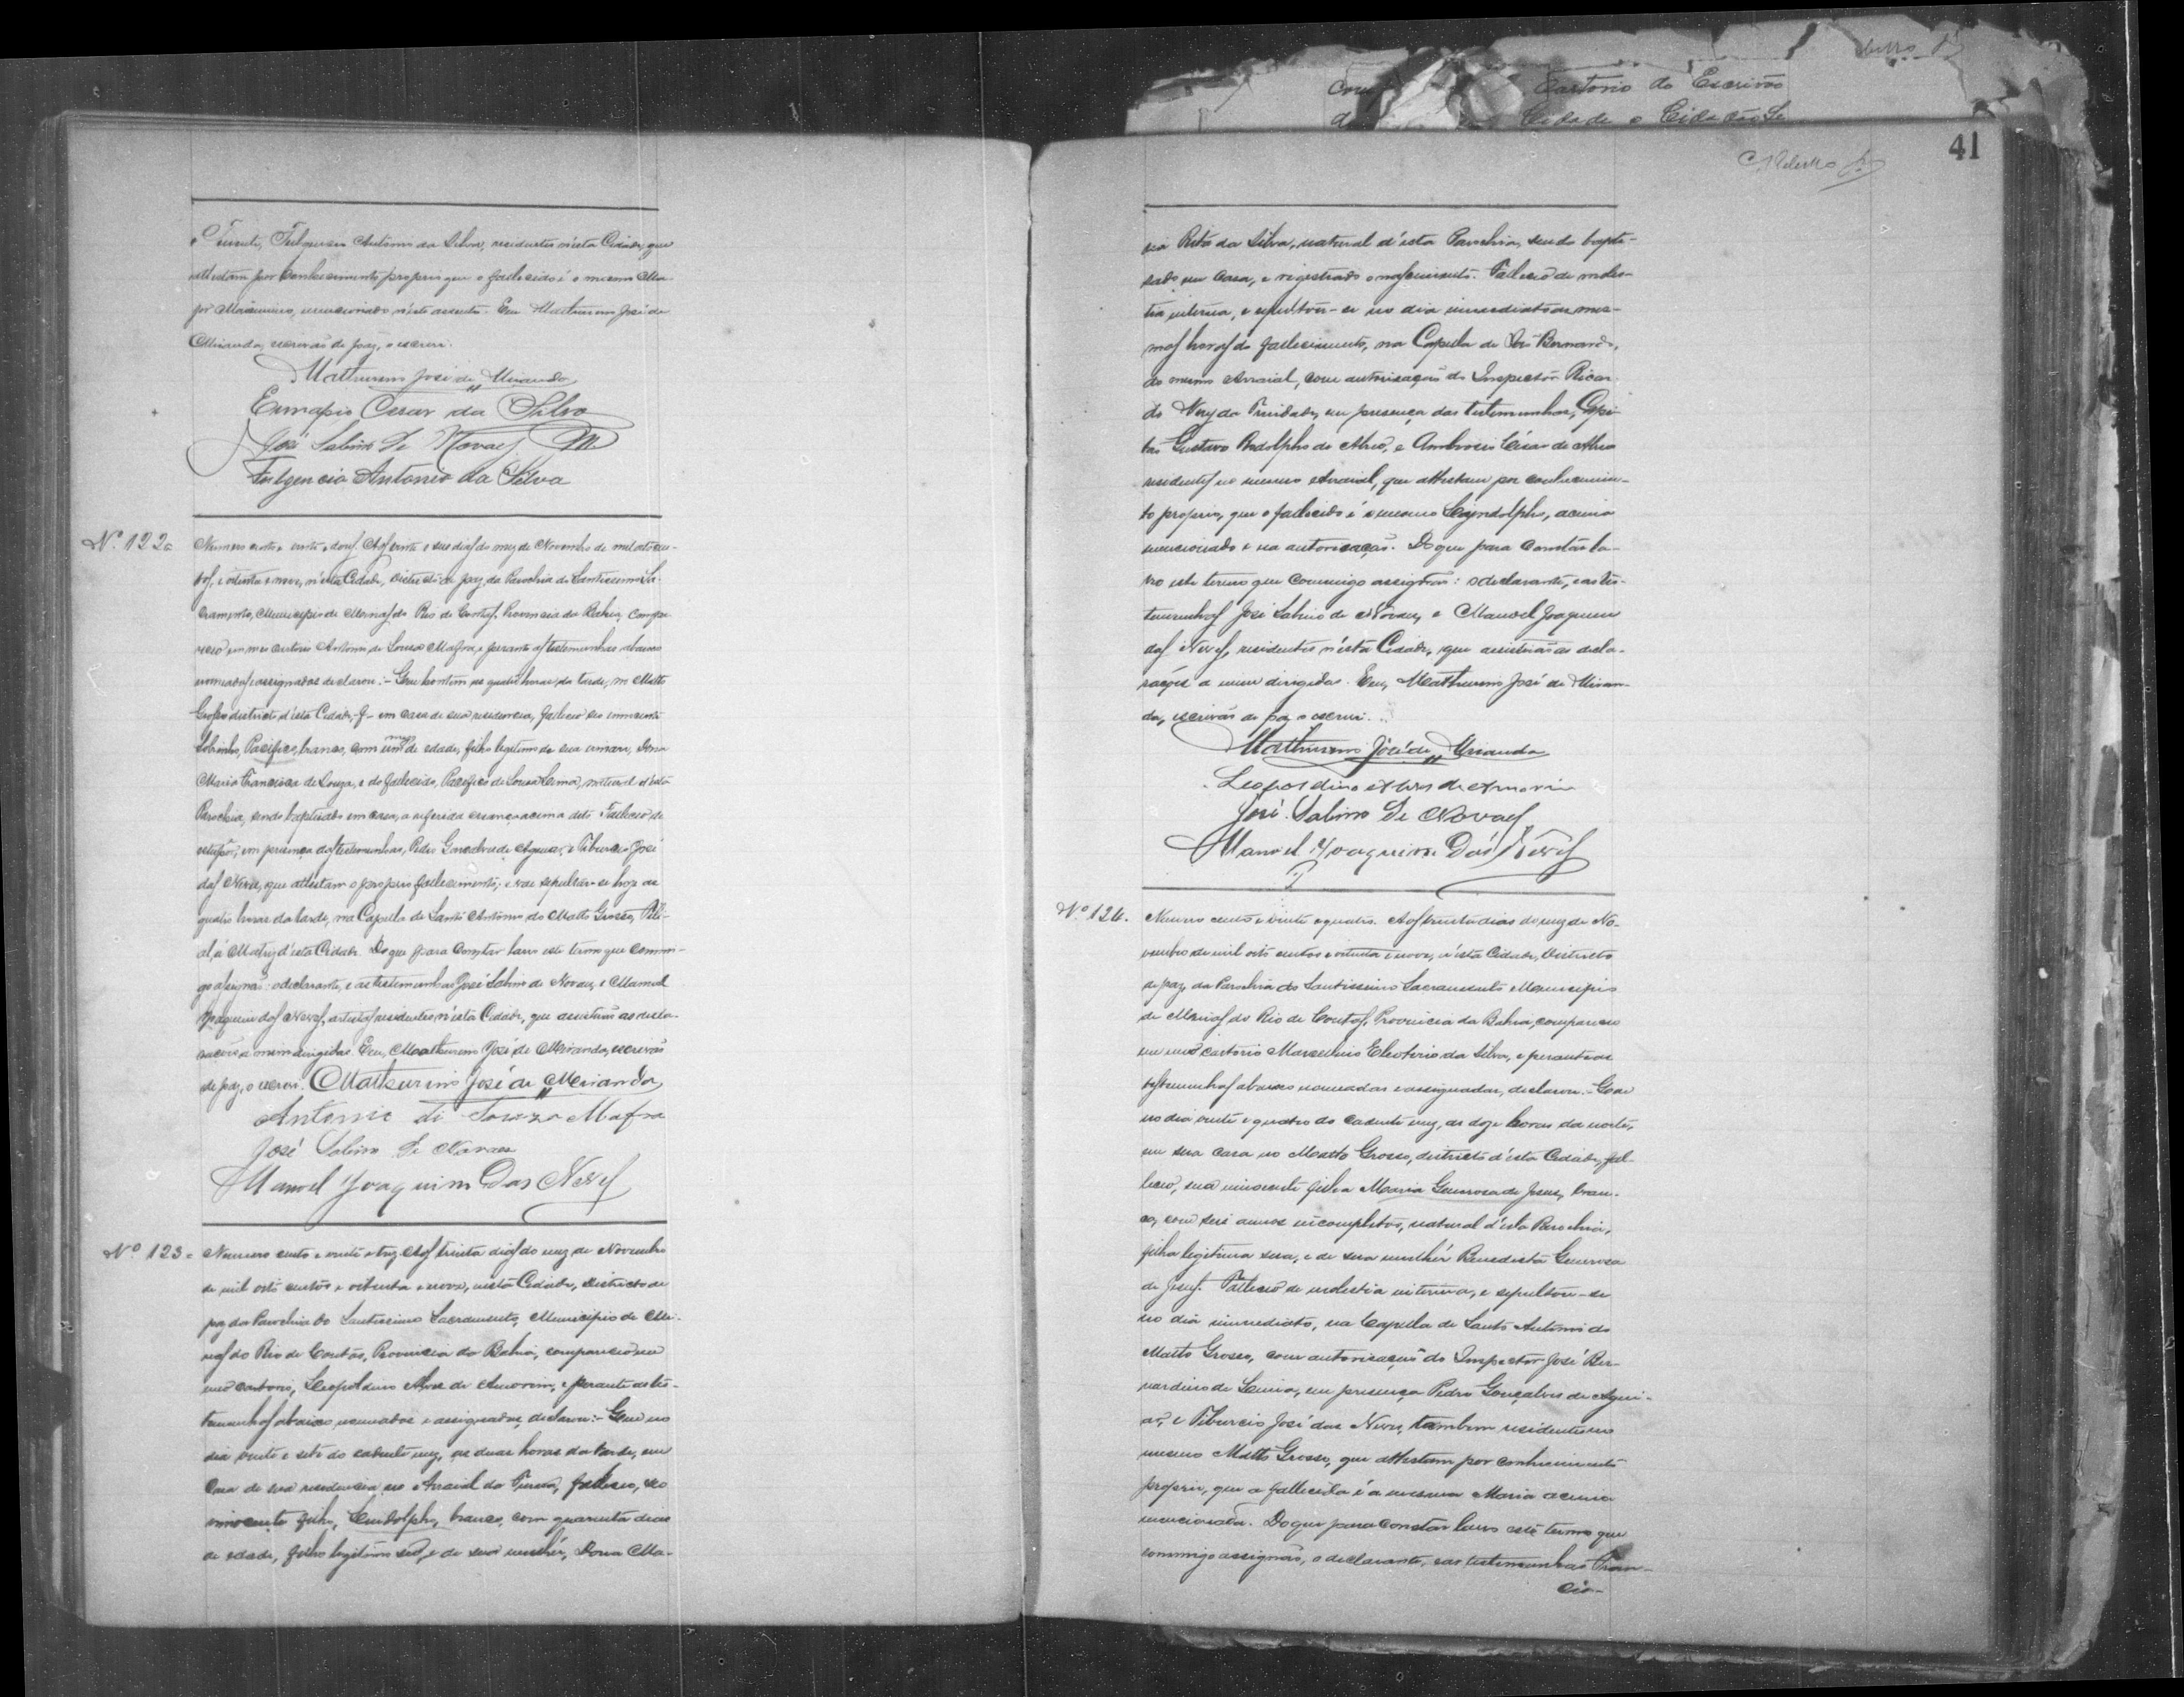 Tenente, Fulgencio Antonio da Silva, residentes n'esta Cidade, que
attestam por conhecimento proprio que o fallecido é o mesmo Ma-
jor Maximiano, mencionado n'este assento. Eu Mathurino José de
Miranda, escrivão de paz, o escrevi.
Mathurino José de Miranda
Eunapio Cesar da Silva
José Sabino de Novaes
Fulgencio Antonio da Silva
Nº 122
Numero cento e vinte e dous. Aos vinte e seis dias do mez de Novembro de mil oitocen-
tos, e oitenta e nove, n'esta Cidade, districto de paz da Parochia do Santissimo Sa-
cramento, Municipio de Minas do Rio de Contas, Provincia da Bahia, compa-
receo em meo cartorio Antonio de Souza Mafra, e perante as testemunhas abaixo
nomeadas e assignadas declarou:- Que hontem as quatro horas da tarde, no Matto
Grosso districto d'esta Cidade, em casa de sua residencia, falleceo seo innocente
sobrinho, Pacifico, branco, com um mez de edade, filho legitimo de sua irman, Dona
Maria Francisca de Souza, e do fallecido, Pacifico de Souza Lima, natural d'esta
Parochia, sendo baptisado em casa, a referida creança acima dita. Falleceo de
em presença das testemunhas, Pedro Gonçalves de Aguiar, e Tiburcio José
das Neves, que attestam o proprio fallecimento; e vae sepultar-se hoje as
quatro horas da tarde, na Capella de Santo Antonio do Matto Grosso, Fili-
al, á Matriz d'esta Cidade. Do que para constar lavro este termo que commi-
go assignão: o declarante, e as testemunhas José Sabino de Novaes, e Manoel
Joaquim das Neves, artistas residentes n'esta Cidade, que assistirão as decla-
rações a mim dirigidas. Eu, Mathurino José de Miranda, escrivão
de paz, o escrevi. Mathurino José de Miranda
Antonio de Souza Mafra
José Sabino de Novaes
Manoel Joaquim Das Neves
Nº 123
Numero cento e vinte e trez. Aos trinta dias do mez de Novembro
de mil oito centos e oitenta e nove, nesta Cidade, districto de
paz da Parochia do Santissimo Sacramento, Municipio de Mi-
nas do Rio de Contas, Provincia da Bahia, compareceo em
meo cartorio, Leopoldino Alves de Amorim, e perante as tes-
temunhas abaixo nomeadas e assignadas, declarou:- Que no
dia vinte e sete do cadente mez, as duas horas da tarde, em
casa de sua residencia no Arraial do falleceo, seo
innocente filho, Lindolpho, branco, com quarenta dias
de edade, filho legitimo seo, e de sua mulher, Dona Ma-
41
ria Rita da Silva, natural d'esta Parochia, sendo bapti-
sado em casa, e registrado o nascimento. Falleceo de moles-
tia interna, e sepultou-se no dia immediato as mes-
mas horas do fallecimento, na Capella de São Bernardo,
do mesmo Arraial, com autorisação do Inspector Ricar-
do Nery da Trindade, em presença das testemunhas, Capi-
tão Gustavo Rodolpho de e Ambrosio Cesar de
residentes no mesmo Arraial, que attestam por conhecimen-
to proprio, que o fallecido é o mesmo Leyndolpho, acima
mencionado e na autorisação. Do que para constar la-
vro este termo que commigo assignão: o declarante, e as tes-
temunhas José Sabino de Novaes, e Manoel Joaquim
das Neves, residentes n'esta Cidade, que assistirão as decla-
rações a mim dirigidas. Eu, Mathurino José de Miran-
da, escrivão de paz o escrevi.
Mathurino José de Miranda
Leopoldino Alves de Amorim
José Sabino De Novaes
Manoel Joaquim Das Neves
Nº 124.
Numero cento e vinte e quatro. Aos trinta dias do mez de No-
vembro de mil oito centos e oitenta e nove, n'esta Cidade, Districto
de paz, da Parochia do Santissimo Sacramento Municipio
de Minas do Rio de Contas, Provincia da Bahia, compareceo
em meo cartorio Marcellino Eleoterio da Silva, e perante as
testemunhas abaixo nomeadas e assignadas, declarou:- Que
no dia vinte e quatro do cadente mez, as doze horas da noite,
em sua casa no Matto Grosso, districto d'esta Cidade, fal-
leceo, sua innocente filha Maria Generosa de Jesus, bran-
ca, com seis annos incompletos, natural d'esta Parochia,
filha legitima sua, e de sua mulher Benedicta Generosa
de Jesus. Falleceo de molestia interna, e sepultou-se
no dia immediato, na Capella de Santo Antonio do
Matto Grosso, com autorisação do Inspector José Ber-
nardino de Lima, em presença Pedro Gonçalves de Agui-
ar, e Tiburcio José das Neves, tambem residentes no
mesmo Matto Grosso, que attestam por conhecimento
proprio, que a fallecida é a mesma Maria acima
mencionada. Do que para constar lavro este termo que
commigo assignão, o declarante, e as testemunhas Fran-
cis-
Cartorio do Escrivão
Cidade o Cidadão